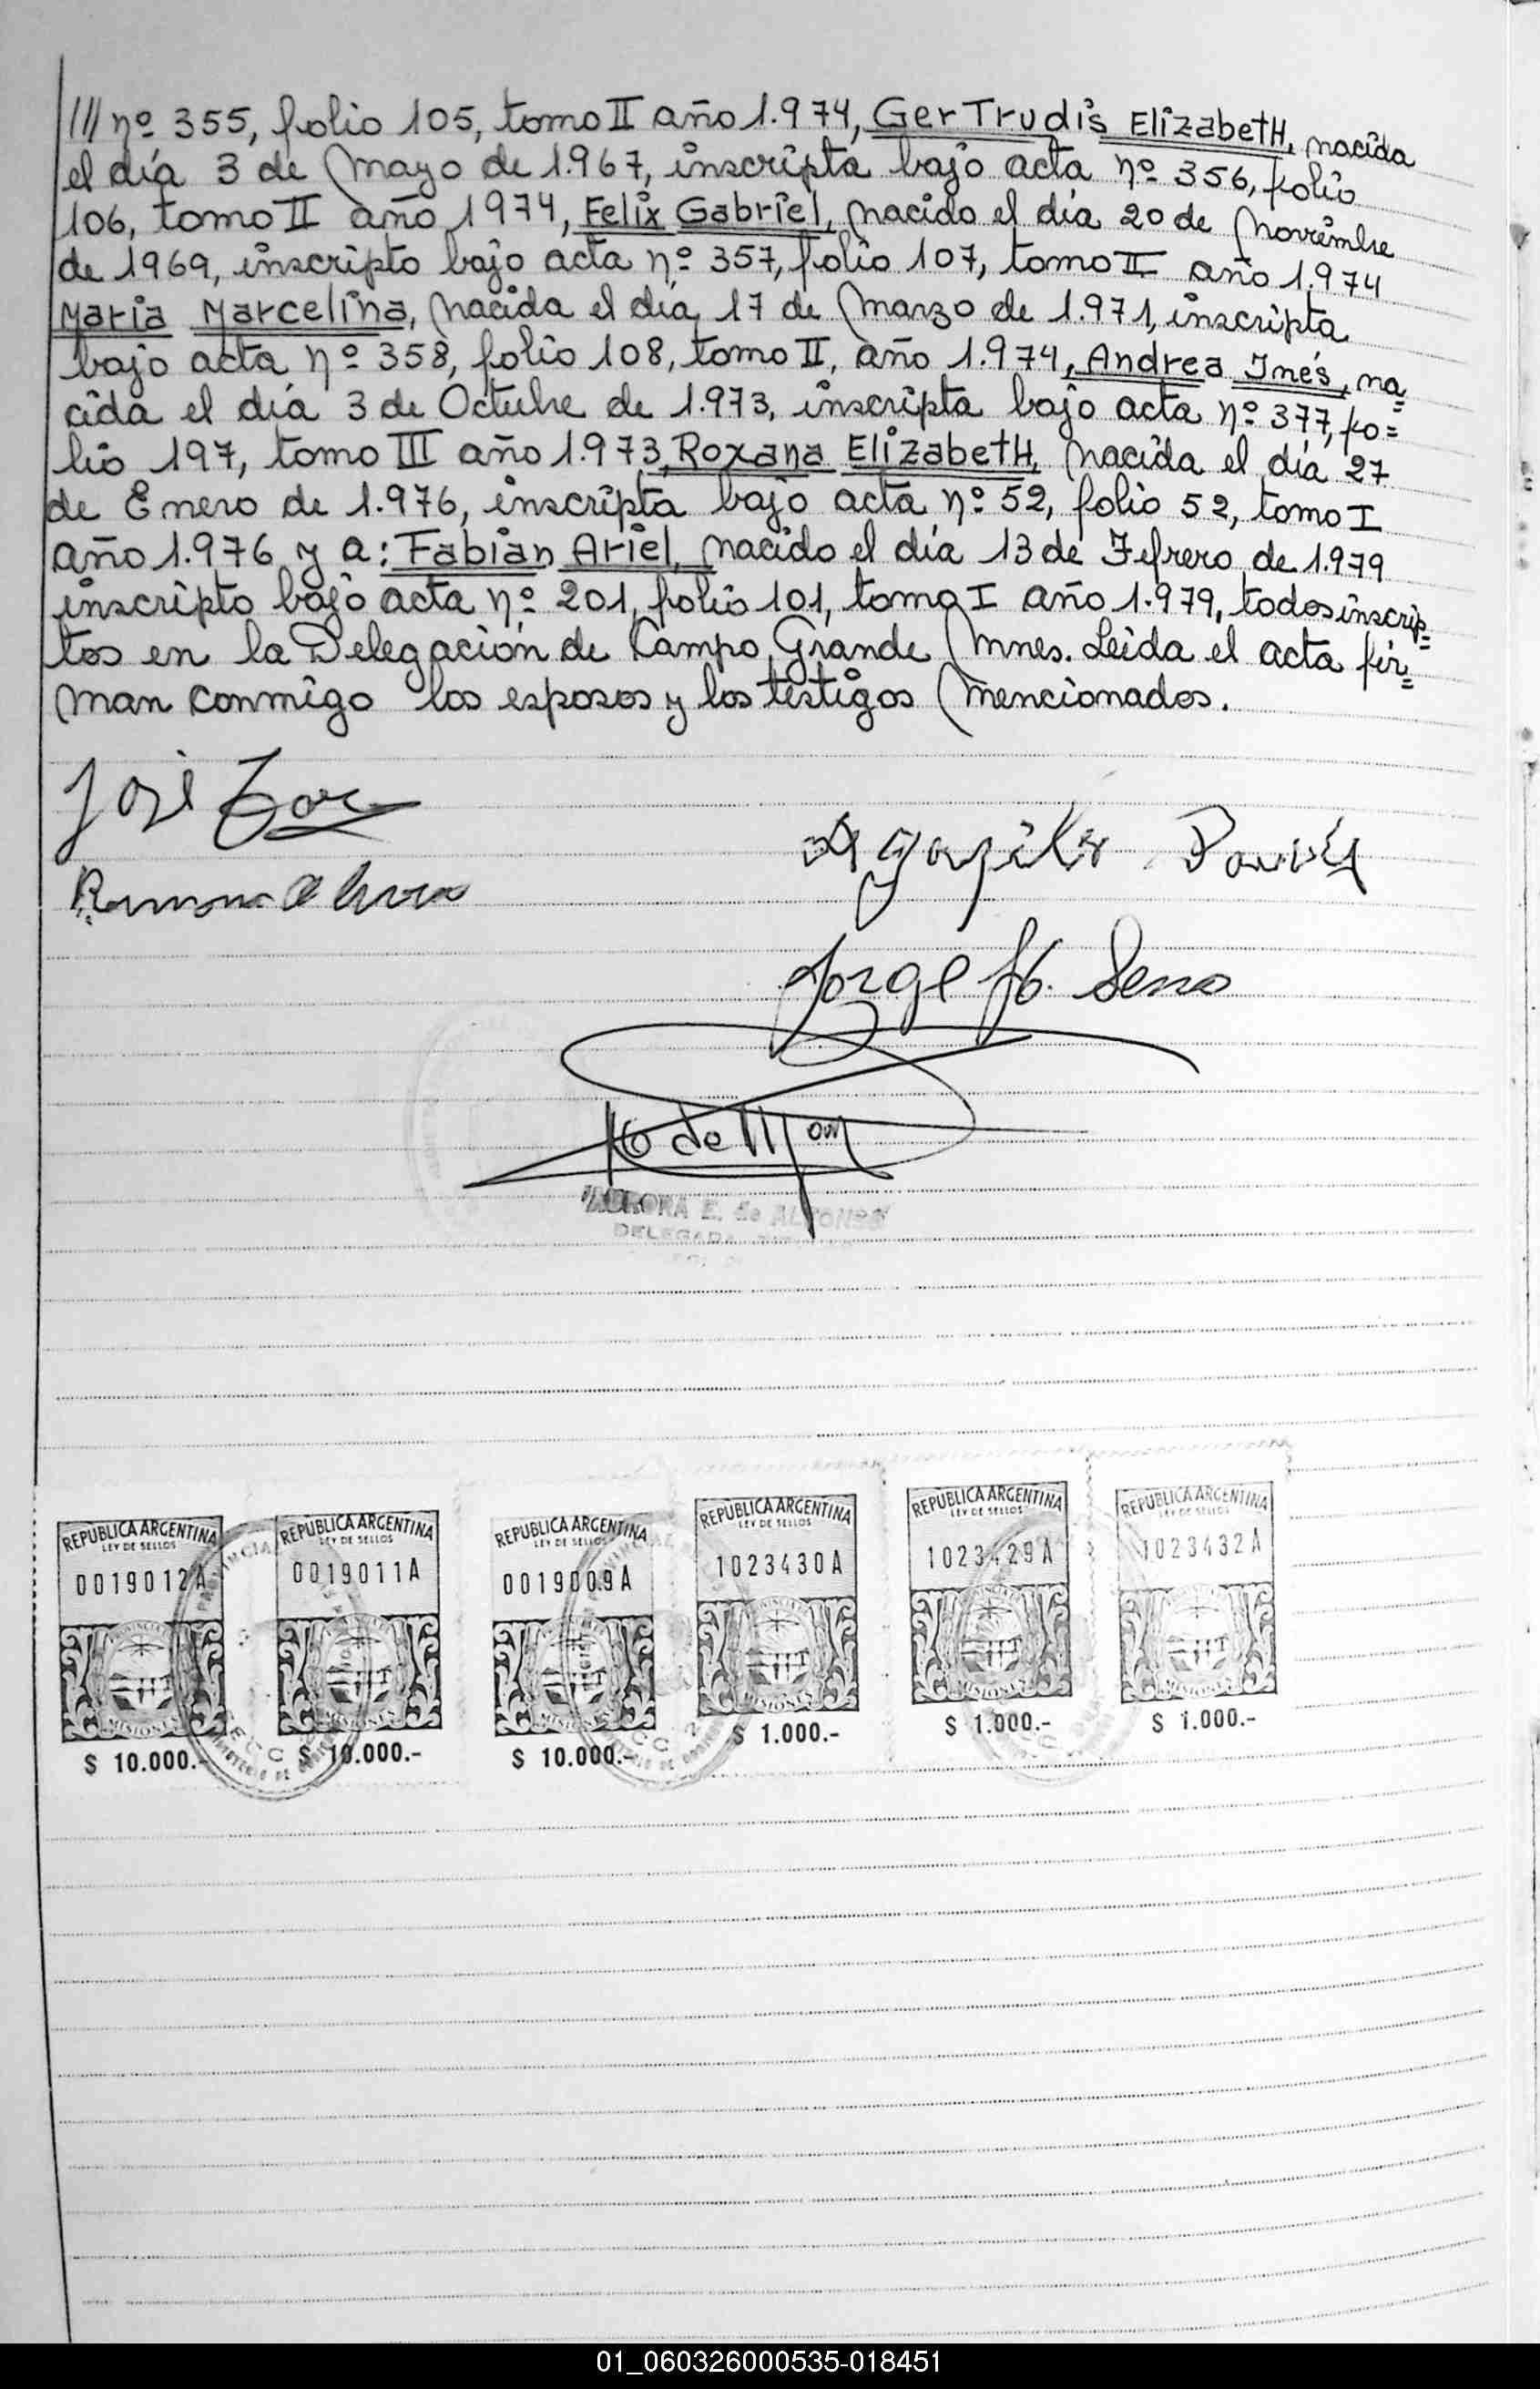 /// nº 355, folio 105, tomo II año 1.974, GerTrudis ElizabetH, nacida
el día 3 de Mayo de 1.967, inscripta bajo acta nº 356, folio
106, tomo II año 1974, Felix Gabriel, nacido el día 20 de Noviembre
de 1969, inscripto bajo acta nº 357, folio 107, tomo II año 1.974
Maria Marcelina, nacida el día 17 de Marzo de 1.971, inscripta
bajo acta nº 358, folio 108, tomo II, año 1.974, Andrea Inés, na=
cida el día 3 de Octubre de 1.973, inscripta bajo acta nº 377, fo=
lio 197, tomo III año 1.973, Roxana ElizabetH, nacida el día 27
de Enero de 1.976, inscripta bajo acta nº 52, folio 52, tomo I
año 1.976 y a: Fabian Ariel, nacido el día 13 de Febrero de 1.979
inscripto bajo acta nº 201, folio 101, tomo I año 1.979, todos inscrip=
tos en la Delegación de Campo Grande Mnes. Leida el acta fir=
man conmigo los esposos y los testigos mencionados.
José
Ramona
Jorge
AURORA E. de
DELEGADA
REPUBLICA ARGENTINA
LEY DE SELLOS
0019012A
MISIONES
$ 10.000.-
REPUBLICA ARGENTINA
LEY DE SELLOS
0019011A
MISIONES
$ 10.000.-
REPUBLICA ARGENTINA
LEY DE SELLOS
0019009A
MISIONES
$ 10.000.-
REPUBLICA ARGENTINA
LEY DE SELLOS
1023430A
MISIONES
$ 1.000.-
REPUBLICA ARGENTINA
LEY DE SELLOS
1023429A
MISIONES
$ 1.000.-
REPUBLICA ARGENTINA
LEY DE SELLOS
1023432A
MISIONES
$ 1.000.-
01_060326000535-018451